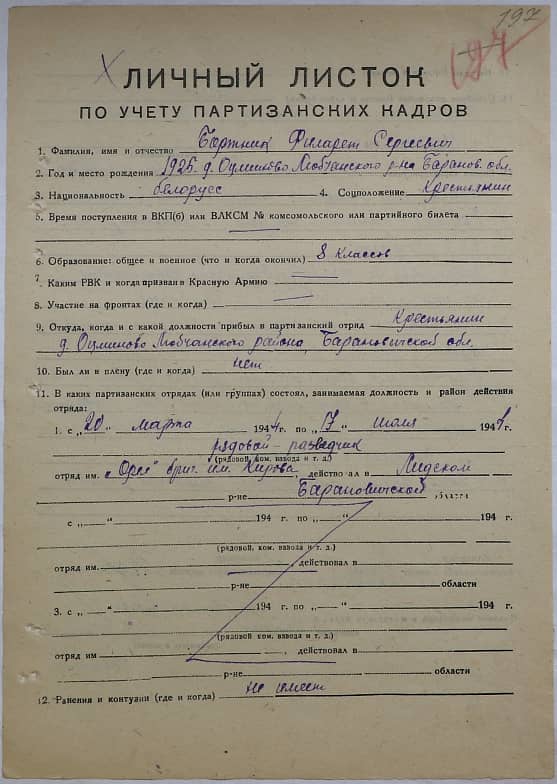 197
197
ЛИЧНЫЙ ЛИСТОК
ПО УЧЕТУ ПАРТИЗАНСКИХ КАДРОВ
1. Фамилия, имя и отчество Бортник Филарет Сергеевич
2. Год и место рождения 1925. д. Оцминово Любчанского р-на Баранов. обл.
3. Национальность белорусс 4. Соцположение Крестьянин
5. Время поступления в ВКП(б) или ВЛКСМ № комсомольского или партийного билета
6. Образование: общее и военное (что и когда окончил) 8 классов
7. Каким РВК и когда призван в Красную Армию
8. Участие на фронтах (где и когда)
9. Откуда, когда и с какой должности прибыл в партизанский отряд Крестьянин
д. Оцминово Любчанского района, Барановичской обл.
10. Был ли в плену (где и когда) нет
11. В каких партизанских отрядах (или группах) состоял, занимаемая должность и район действия
отряда:
1. с „20" марта 1944 г. по „17 июля 1944 г.
рядовой-разведчик
(рядовой, ком. взвода и т. д.)
отряд им. „Орел" бриг. им. Кирова, действовал в Лидском
р-не Барановичской области
с „ " 194 г. по „ " 194 г.
(рядовой, ком. взвода и т. д.)
отряд им. , действовал в
р-не области
3. с „ " 194 г. по „ " 194 г.
(рядовой, ком. взвода и т. д.)
отряд им , действовал в
р-не области
12. Ранения и контузии (где и когда) не имеет